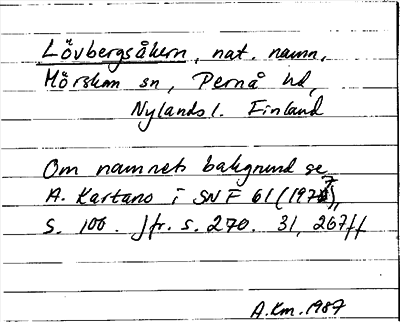 Lövbergsåkern, nat. namn,
Mörskom sn, Pernå hd,
Nylands l. Finland
Om namnets bakgrund se
A. Kartano i SNF 61 (1977),
s. 106. Jfr. s. 270. 31, 267ff
A.Km. 1987